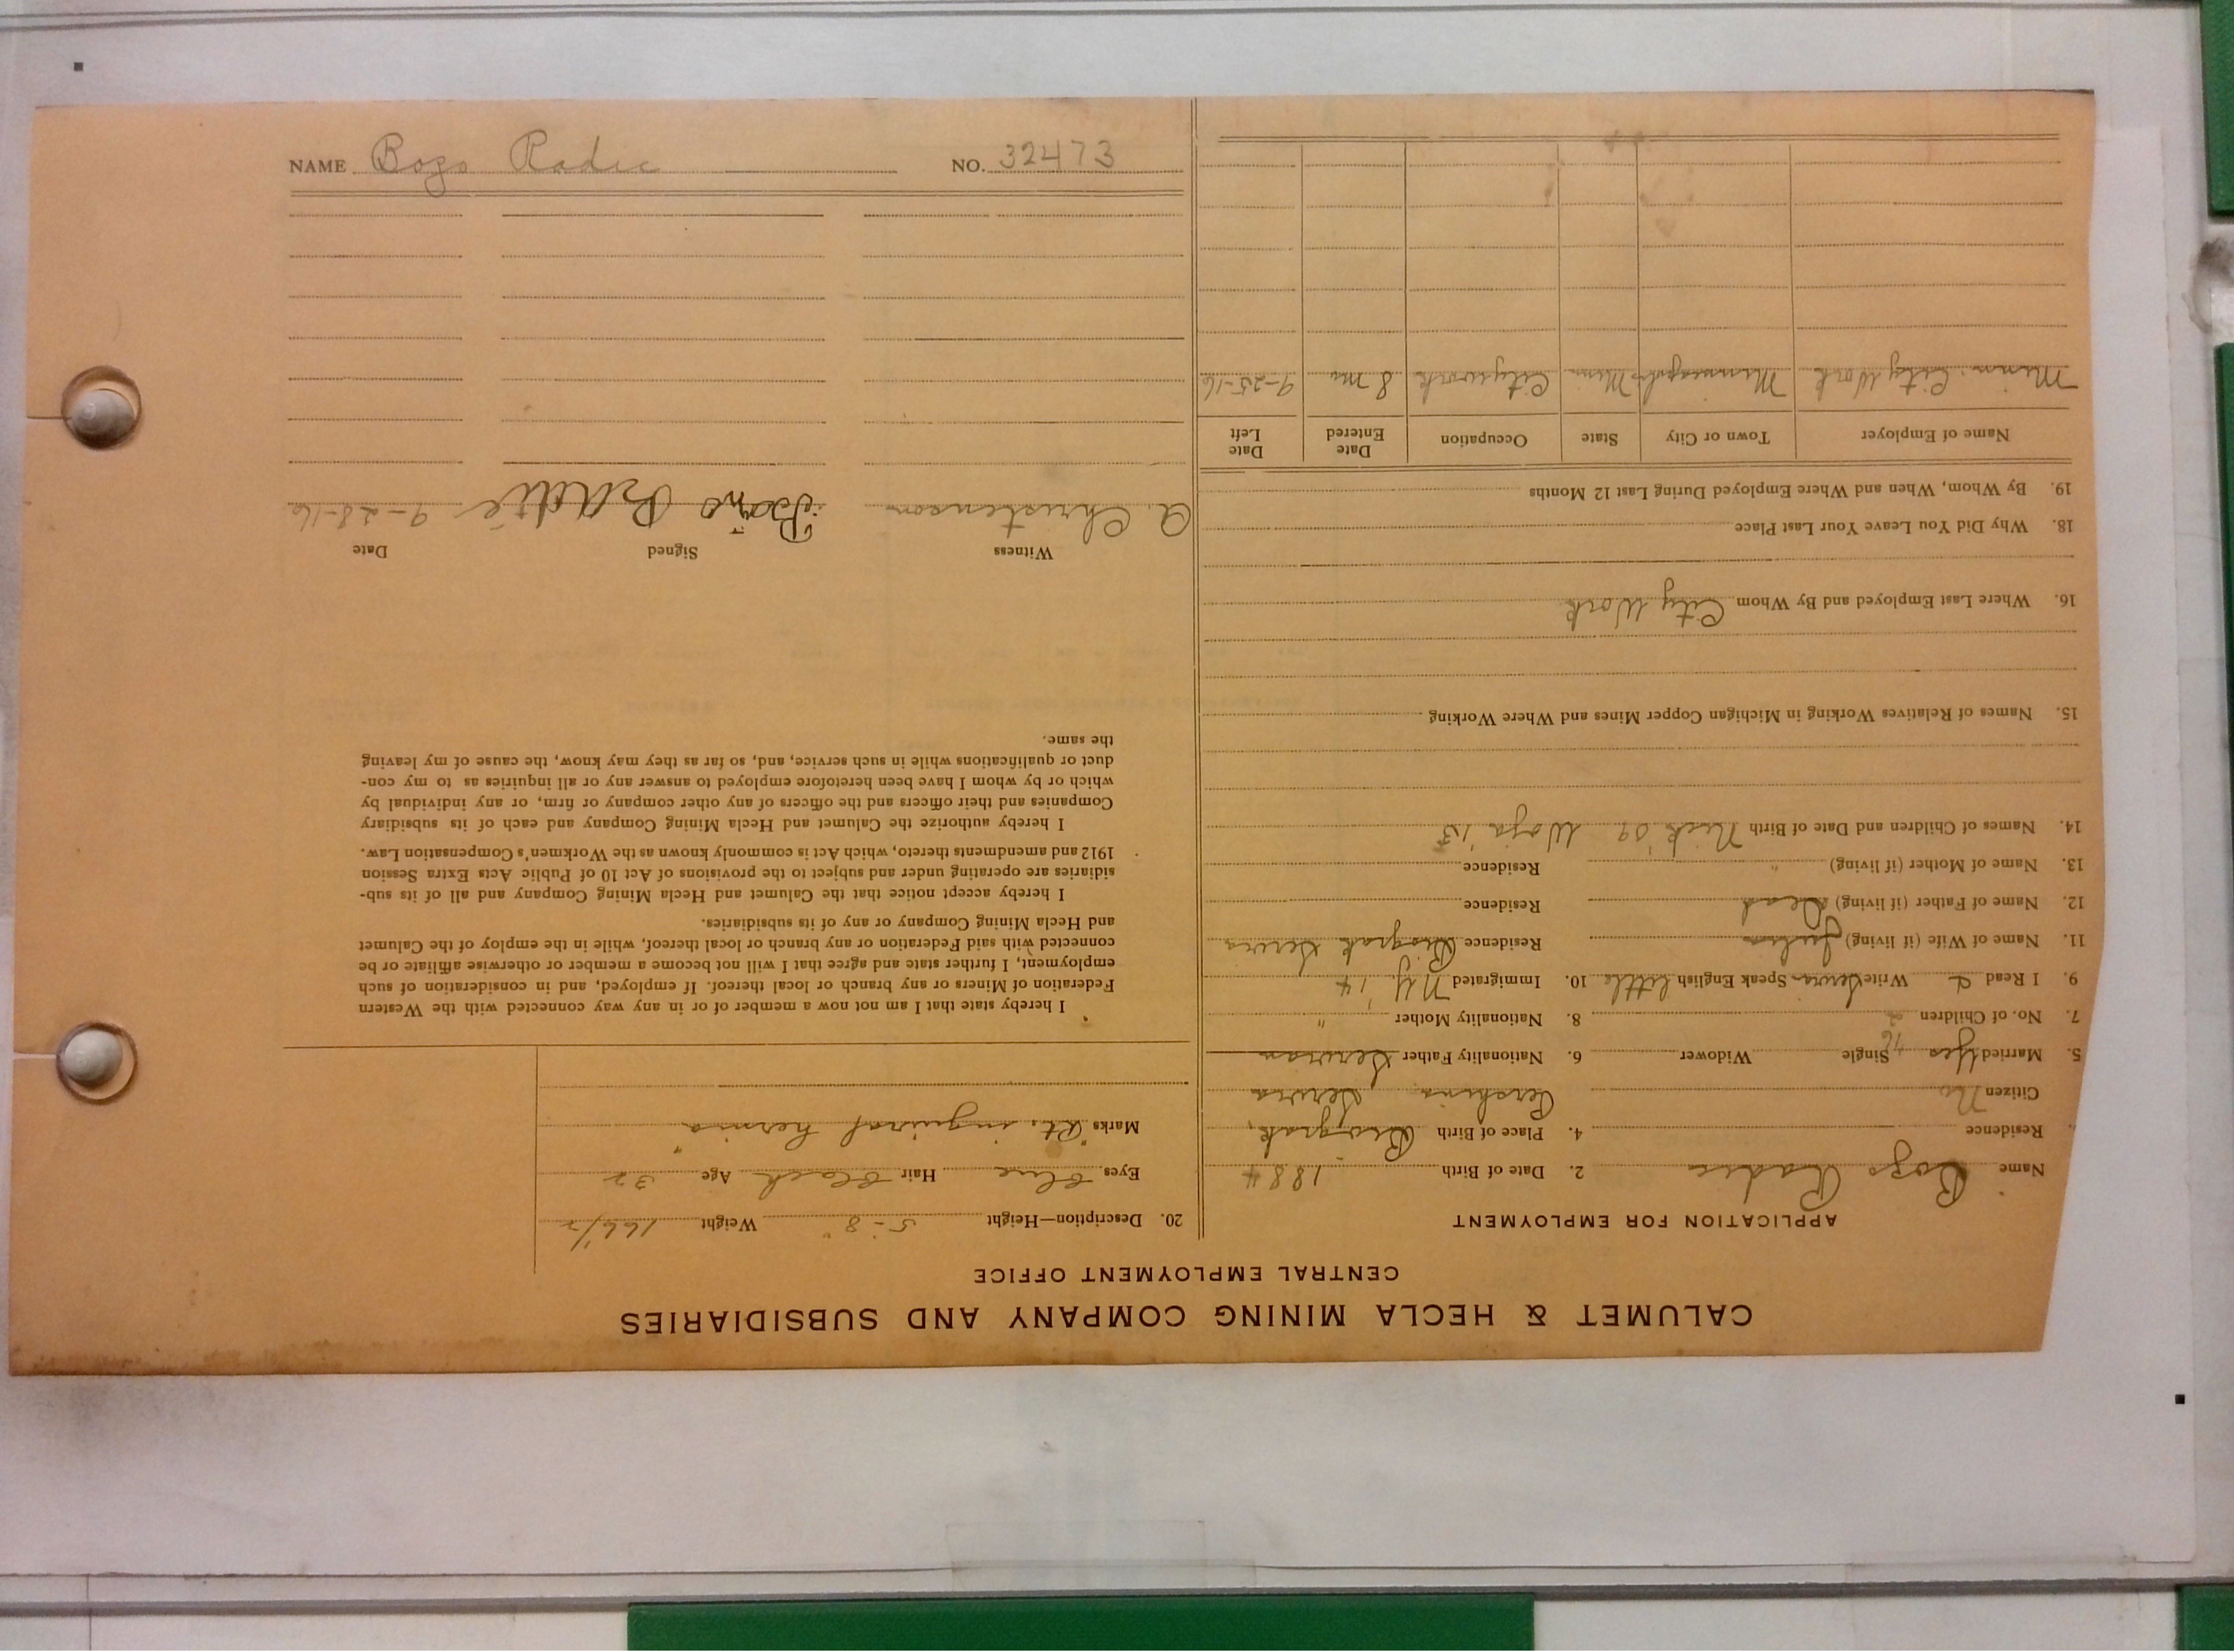 CALUMET & HECLA MINING COMPANY AND SUBSIDIARIES
CENTRAL EMPLOYMENT OFFICE
APPLICATION FOR EMPLOYMENT
Name Bozo Radic 2. Date of Birth 1884
Residence 4. Place of Birth
Citizen No Servia
5. Married Yes Single Widower 6. Nationality Father Servian
7. No. of Children 2 8. Nationality Mother "
9. I Read & Write Servian Speak English little 10. Immigrated N.Y. '14
11. Name of Wife (if living) Residence Servia
12. Name of Father (if living) Dead Residence
13. Name of Mother (if living) " Residence
14. Names of Children and Date of Birth Nick '09 '13
15. Names of Relatives Working in Michigan Copper Mines and Where Working
16. Where Last Employed and By Whom City Work
18. Why Did You Leave Your Last Place
19. By Whom, When and Where Employed During Last 12 Months
Name of Employer Town or City State Occupation Date Entered Date Left
Minn. City Work Minneapolis Minn City work 8 mo 9-25-16
20. Description—Height 5-8" Weight 166 1/2
Eyes blue Hair black Age 32
Marks "Rt. inguinal hernia"
I hereby state that I am not now a member of or in any way connected with the Western
Federation of Miners or any branch or local thereof. If employed, and in consideration of such
employment, I further state and agree that I will not become a member or otherwise affiliate or be
connected with said Federation or any branch or local thereof, while in the employ of the Calumet
and Hecla Mining Company or any of its subsidiaries.
I hereby accept notice that the Calumet and Hecla Mining Company and all of its sub-
sidiaries are operating under and subject to the provisions of Act 10 of Public Acts Extra Session
1912 and amendments thereto, which Act is commonly known as the Workmen's Compensation Law.
I hereby authorize the Calumet and Hecla Mining Company and each of its subsidiary
Companies and their officers and the officers of any other company or firm, or any individual by
which or by whom I have been heretofore employed to answer any or all inquiries as to my con-
duct or qualifications while in such service, and, so far as they may know, the cause of my leaving
the same.
Witness Signed Date
A. Christenson Božo Radić 9-28-16
NAME Bozo Radic NO. 32473